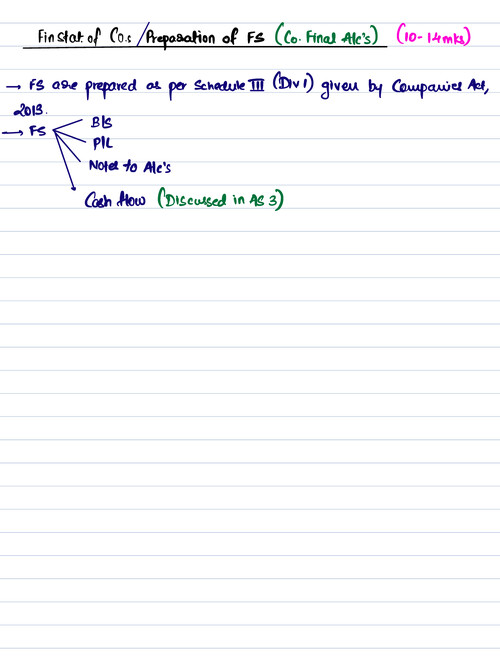 Fin Stat. of Co.s / Preparation of FS (Co. Final A/c's) (10-14mks)
→ FS are prepared as per Schedule III (Div I) given by Companies Act,
2013.
→ FS
B/S
P/L
Notes to A/c's
Cash flow (Discussed in AS 3)